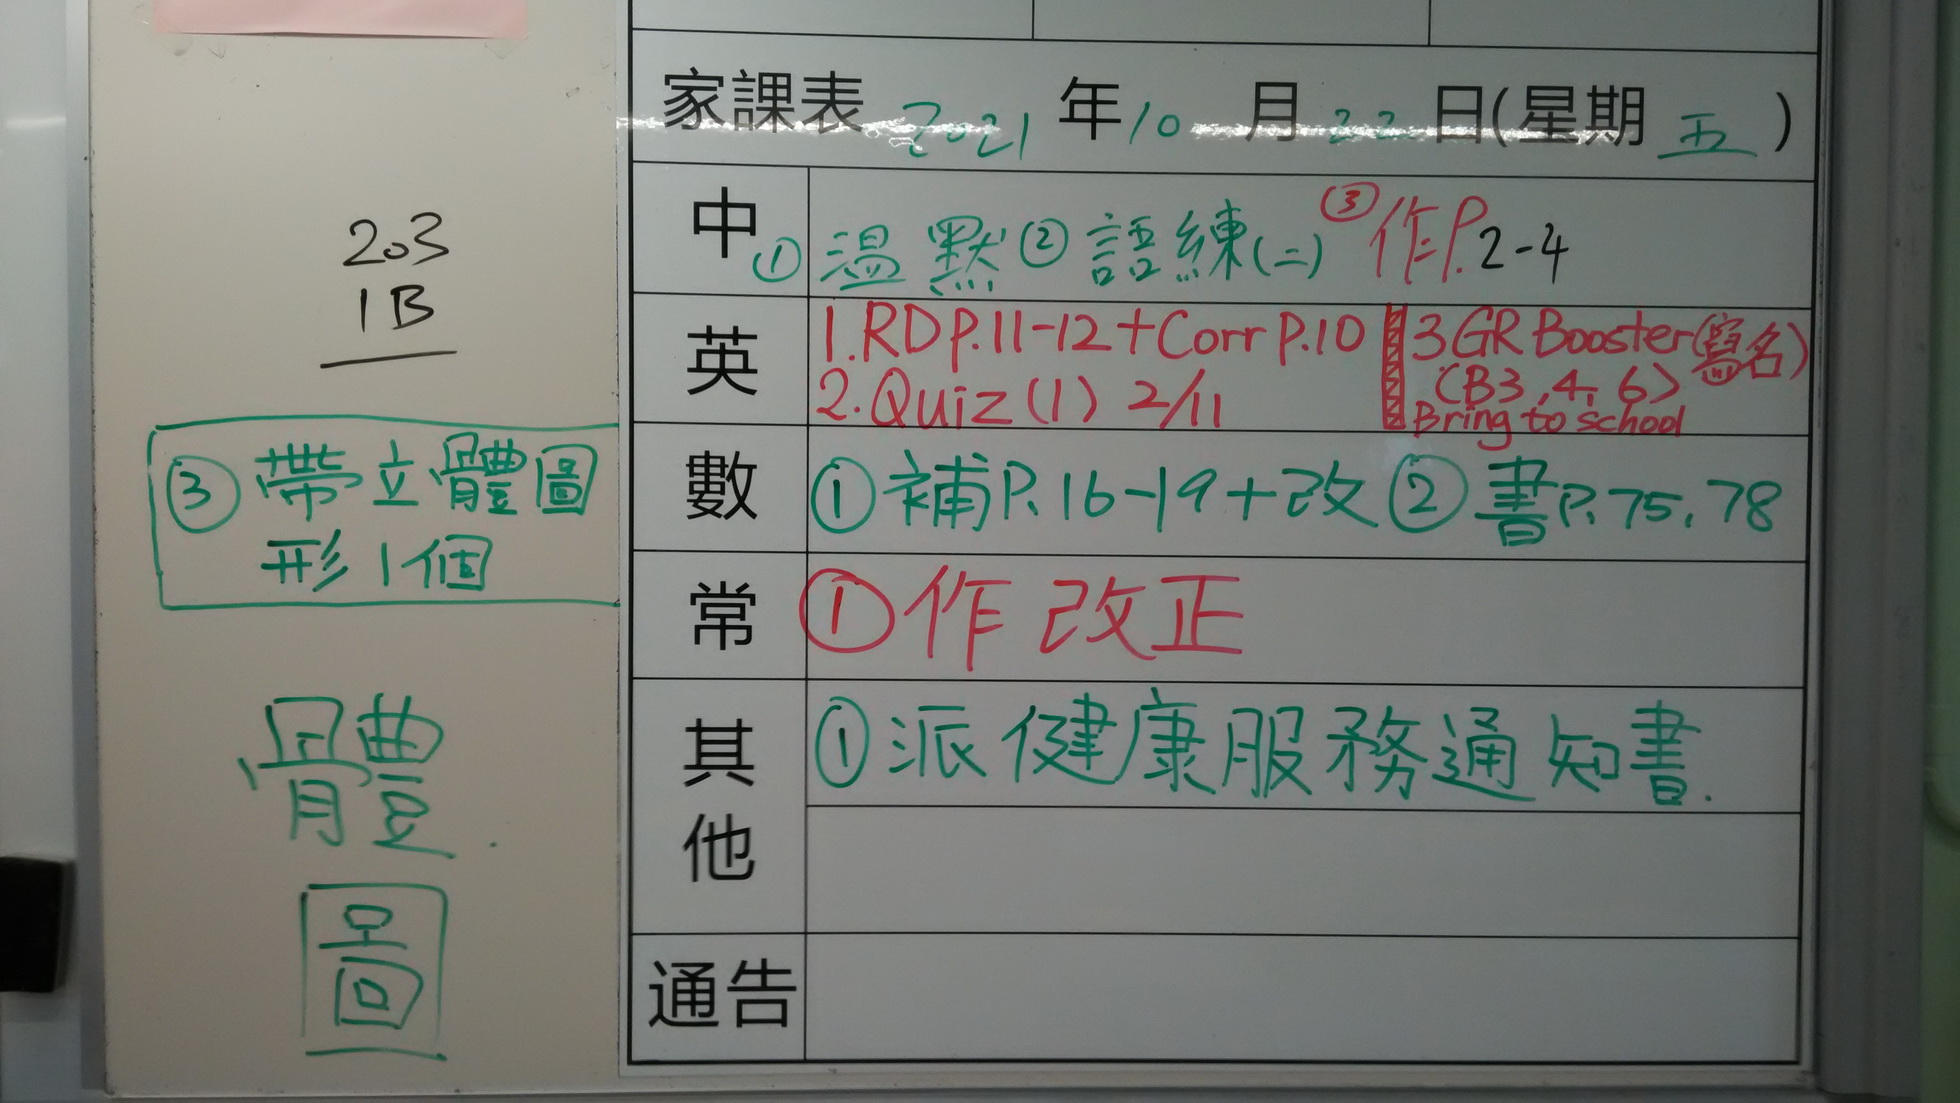 家課表 2021 年 10 月 22 日(星期 五 )
203
1B
中 ① 溫默 ② 語練(二) ③ 作P.2-4
英
1.RD P.11-12+Corr P.10
2.Quiz (1) 2/11
3 GR Booster(寫名)
(B3, 4, 6)
Bring to school
數 ① 補P.16-19+改 ② 書P.75, 78
③ 帶立體圖
形1個
常 ① 作改正
其他 ① 派健康服務通知書.
體
圖
通告